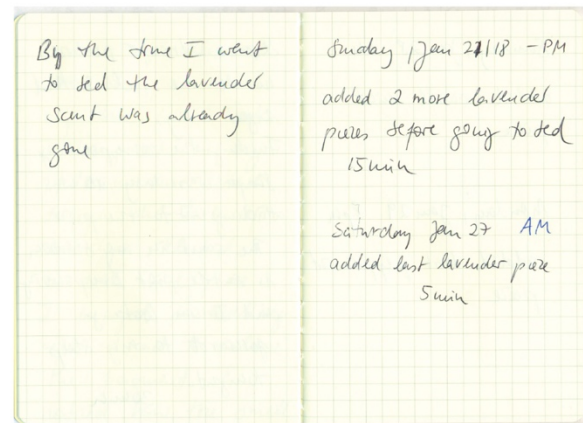 By the time I went
to bed the lavender
scent was already
gone
Sunday, Jan 21/18 - PM
added 2 more lavender
pieces before going to bed
15 min
Saturday Jan 27 AM
added last lavender piece
5 min